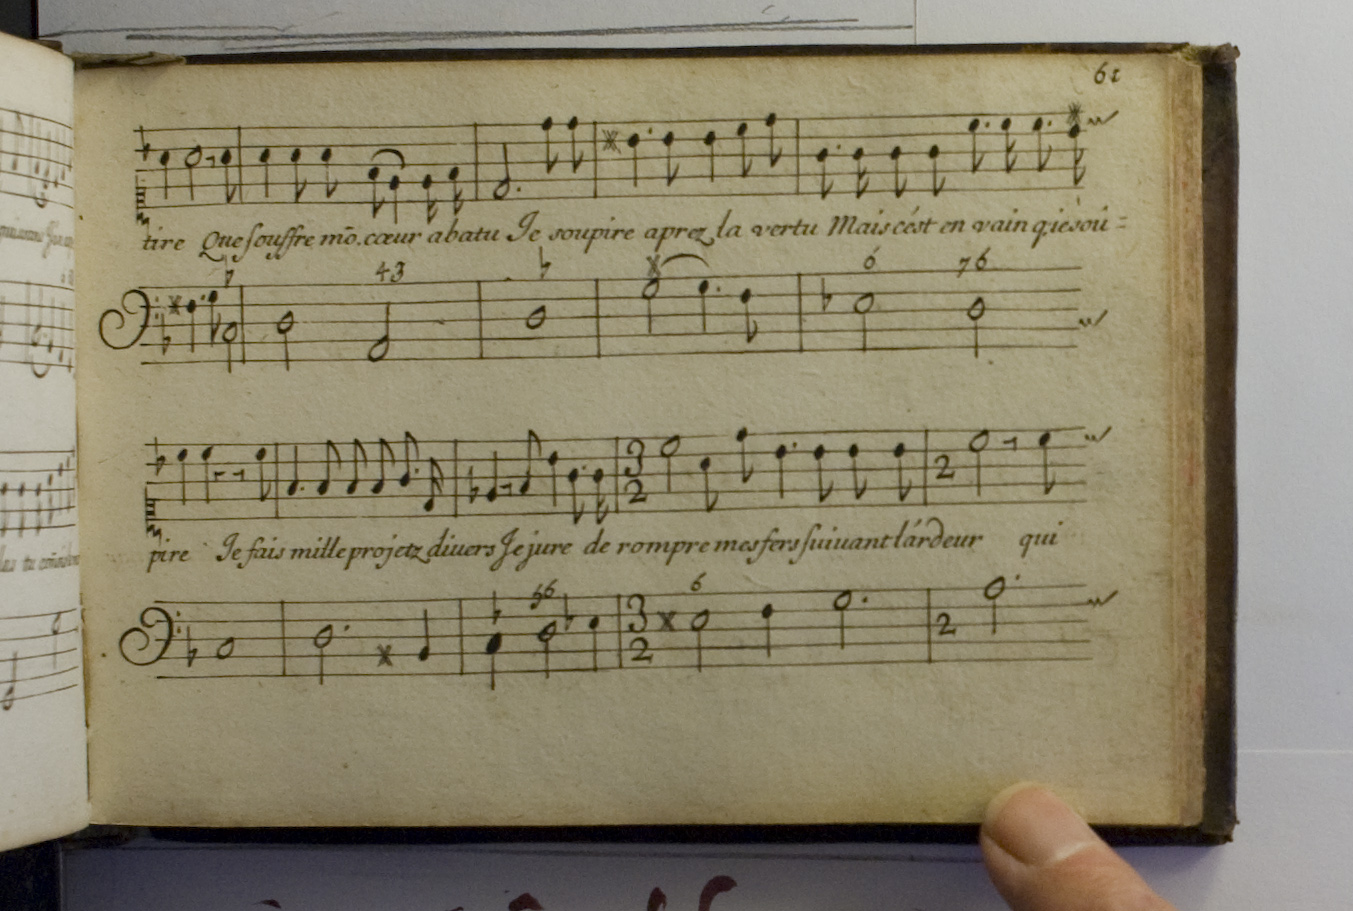 61
tire Que souffre mõ. cœur abatu Je soupire aprez la vertu Mais cést en vain qie sou =
43 6 76
pire Je fais mille projetz divers Je jure de rompre mes fers suivant lárdeur qui
3 2 2
56 6
3 2 2